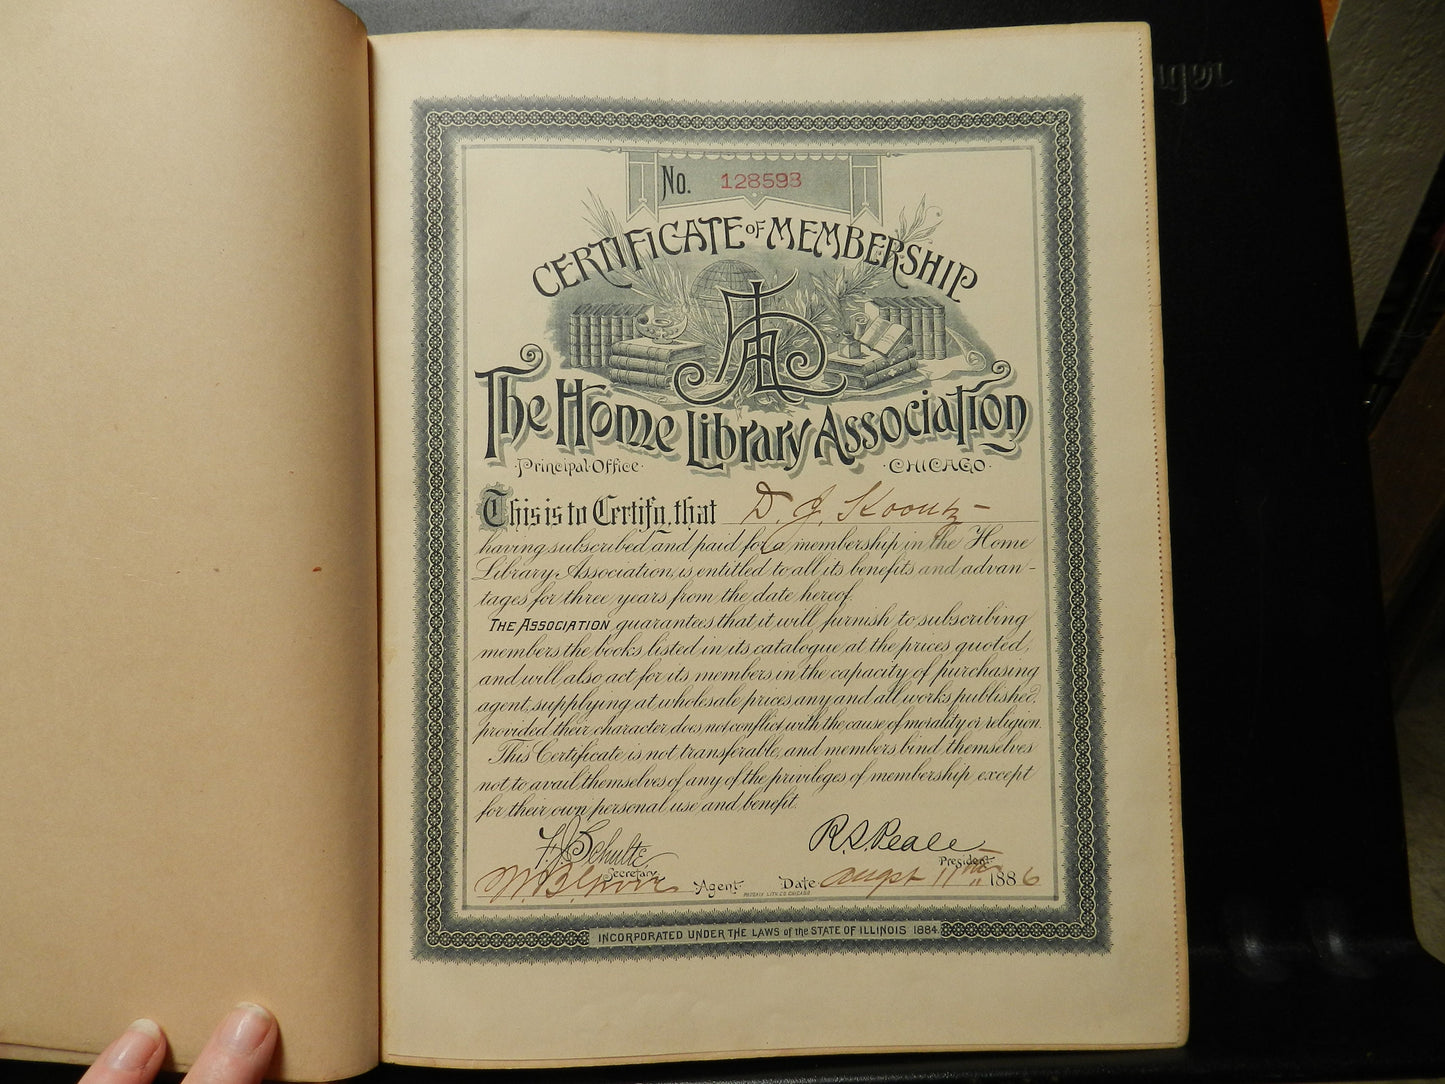 No. 128593
CERTIFICATE OF MEMBERSHIP
HLA
The Home Library Association
Principal Office CHICAGO
This is to Certify, that D. J. Koontz
having subscribed and paid for a membership in the Home
Library Association, is entitled to all its benefits and advan-
tages for three years from the date hereof.
THE ASSOCIATION guarantees that it will furnish to subscribing
members the books listed in its catalogue at the prices quoted,
and will also act for its members in the capacity of purchasing
agent, supplying at wholesale prices any and all works published,
provided their character does not conflict with the cause of morality or religion.
This Certificate is not transferable, and members bind themselves
not to avail themselves of any of the privileges of membership except
for their own personal use and benefit.
F. J. Schulte R. S. Peale
Secretary. President.
Agent. Date August 17th 1886
PHOENIX LITH CO. CHICAGO
INCORPORATED UNDER THE LAWS of the STATE OF ILLINOIS 1884.